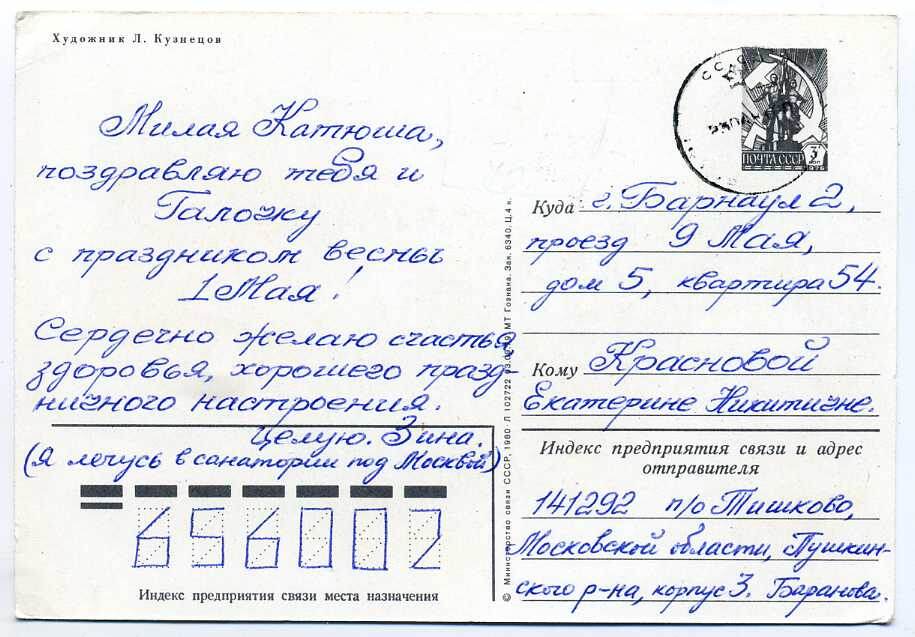 Художник Л. Кузнецов
Милая Катюша,
поздравляю тебя и
Галочку
с праздником весны
1 Мая!
Сердечно желаю счастья,
здоровья, хорошего празд-
ничного настроения.
Целую. Зина.
(Я лечусь в санатории под Москвой)
656002
Индекс предприятия связи места назначения
© Министерство связи СССР, 1980 Л 102722
МТ Гознака. Зак. 6340. Ц. 4 к.
СССР
ПОЧТА СССР 3 коп
Куда г. Барнаул 2,
проезд 9 Мая,
дом 5, квартира 54.
Кому Красновой
Екатерине Никитичне.
Индекс предприятия связи и адрес
отправителя
141292 п/о Тишково,
Московской области, Пушкин-
ского р-на, корпус 3. Баранова.